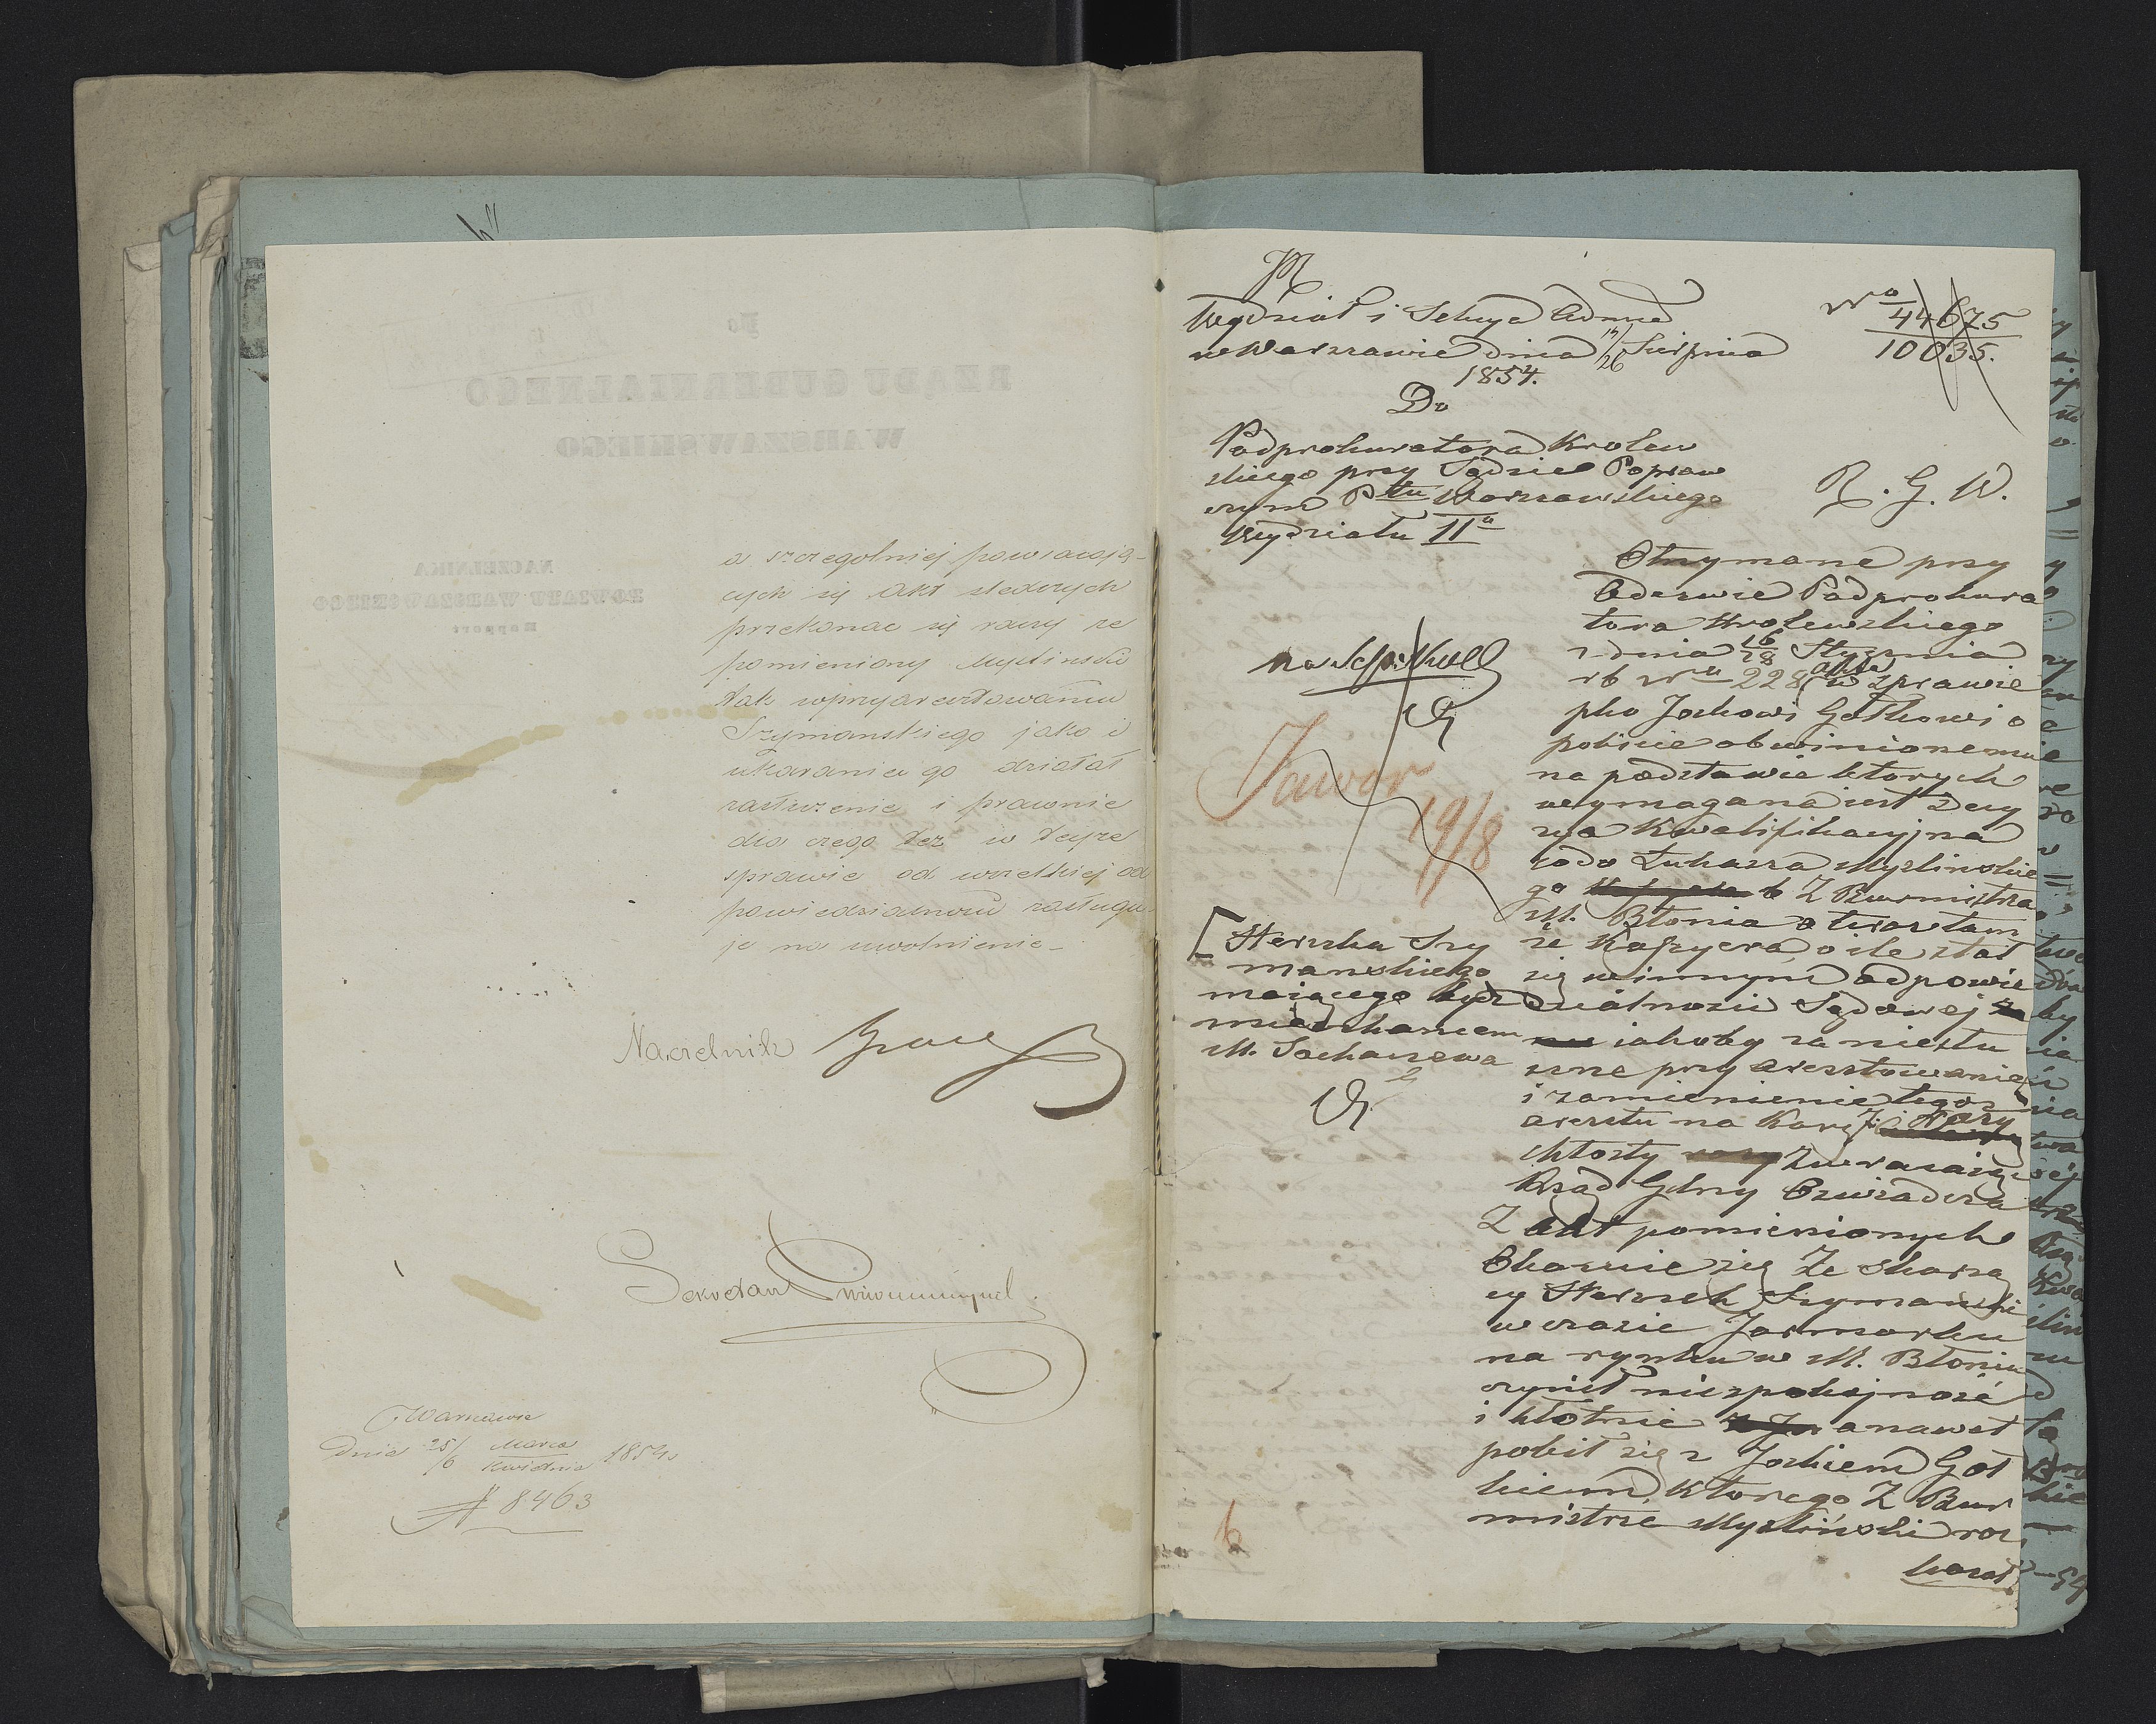 a szczegolniej powiazają-
cych się Akt sledczych
przekonac się raczy ze
pomieniony Myslinski
tak wprzyaresztowaniu
Szymanskiego jako i
ukaraniu go działał
zasłuzenie i prawnie
dla czego tez w tejze
sprawie od wszelkiej od
powiedzialnosci zasługu-
je na uwolnienie_
Naczelnik
Sekretarz
Warszawie
dnia 25/6 Marca Kwietnia 1854.
# 8463
Wydział i Sekcya Admna
w Warszawie dnia 14/26 Sierpnia
1854.
Do
Podprokuratora Krolew
skiego przy Sądzie Popraw
czym Ptu Warszawskiego
Wydziału IIo
No 44675
10035.
R. G. W.
Otrzymane przy
Odezwie Podprokura
tora Krolewskiego
z dnia 16/28 Stycznia
rb Nru 228 akta w sprawie
pko Joskowi Gotkowi o
pobicie obwinionemu
na podstawie ktorych
wymagana iest Decy
zya Kwalifikacyjna
codo Łukasza Myslinskie
go b Z Burmistrza
M. Błonia a teraz tam
że Kassyera, o ile stał
się winnym odpowie
dzialnosci Sądowej
iakoby za niesłu
szne przy aresztowanie
i zamienienie tegoz
aresztu na Karę
chłosty zwracaiąc
Rząd Gbny Oswiadcza
Z akt pomienionych
Okazuie się Ze skarzą
cy Herszek Szymanski
w czasie Jarmarku
na rynku w M. Błoniu
czynił niespokojnosć
i kłotnie a nawet
pobił się z Joskiem Got
kiem, ktorego Z Bur
mistrz Mysliński roz
kazał
na
Jawor
19/8
[Herszka Szy
manskiego
maiącego bydz
mieszkancem
M. Sochaczewa
6